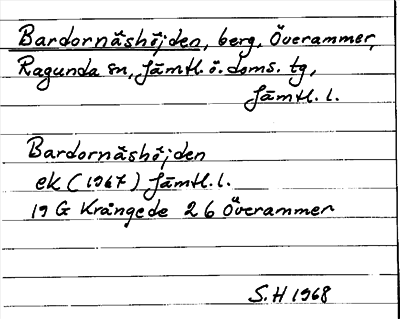 Bardornäshöjden, berg, Överammer,
Ragunda sn, Jämtl. ö. doms. tg,
Jämtl. l.
Bardornäshöjden
ek (1967) Jämtl. l.
19 G Krångede 2 6 Överammer
S.H 1968